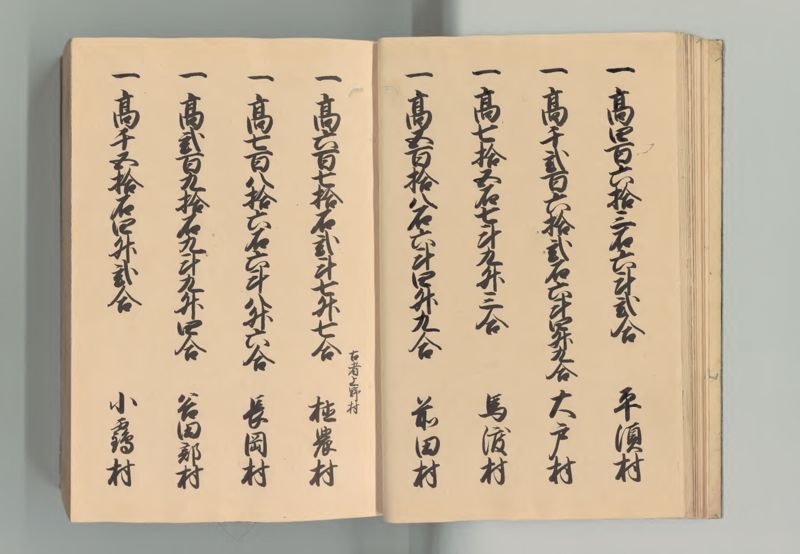 一 高四百六拾三石六斗弐合 平須村
一 高千弐百六拾弐石六斗四升九合 大戸村
一 高七拾五石七斗九升三合 馬渡村
一 高五百拾八石六斗四升九合 前田村
古者上野村
一 高六百七拾石弐斗七升七合 植農村
一 高七百八拾六石六斗八升六合 長岡村
一 高弐百九拾石九斗九升四合 谷田部村
一 高千五拾石四升弐合 小鶴村